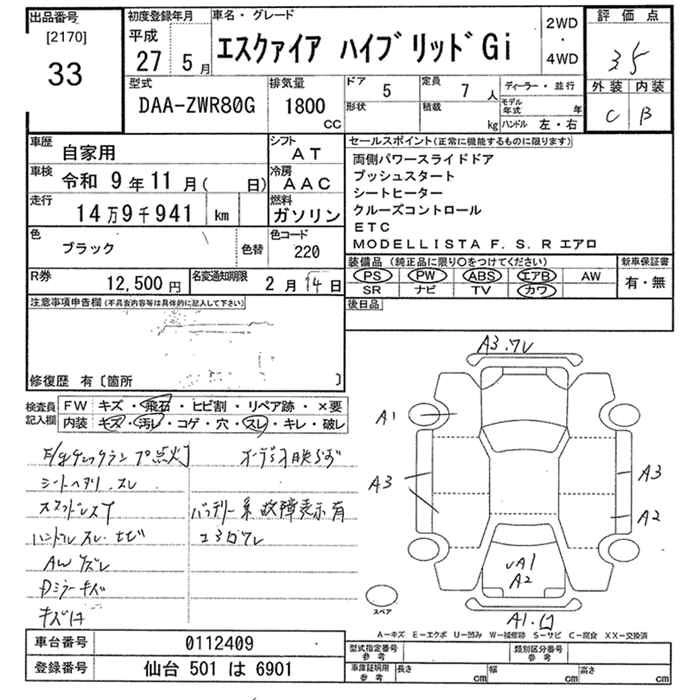 出品番号
[2170]
33
初度登録年月
平成
27年 5月
車名・グレード
エスクァイア ハイブリッドGi
2WD
・
4WD
評価点
3.5
外装 内装
C B
型式
DAA-ZWR80G
排気量
1800
CC
ドア 5
形状
定員 7人
積載 kg
ディーラー・並行
モデル年式 年
ハンドル 左・右
車歴 自家用
シフト AT
車検 令和 9年11月( 日)
冷房 AAC
走行 14万9千941 km
燃料 ガソリン
色 ブラック
色替
色コード 220
R券 12,500円
名変通知期限 2月14日
セールスポイント(正常に機能するものに限ります)
両側パワースライドドア
プッシュスタート
シートヒーター
クルーズコントロール
ETC
MODELLISTA F.S.R エアロ
装備品(純正品に限り○をつけてください)
PS PW ABS エアB AW
SR ナビ TV カワ
新車保証書
有・無
後日品
注意事項申告欄(不具合内容等は具体的に記入して下さい)
修復歴 有〔箇所 〕
検査員記入欄
FW キズ・飛石・ヒビ割・リペア跡・×要
内装 キズ・汚レ・コゲ・穴・スレ・キレ・破レ
E/gチェックランプ点火丁
オーデオ映らず
シートヘタリ、スレ
バッテリー系故障表示有
ハンドルスレ・ヒビ
エコログレ
AWズレ
Dミラーキズ
キズ汁
A3.ワレ
A1
A3
A3
A2
A1
A2
A1.
スペア
A―キズ E―エクボ U―凹み W―補修跡 S―サビ C―腐食 XX―交換済
車台番号 0112409
登録番号 仙台 501 は 6901
型式指定番号 参考
類別区分番号 参考
車庫証明用 参考
長さ cm
幅 cm
高さ cm